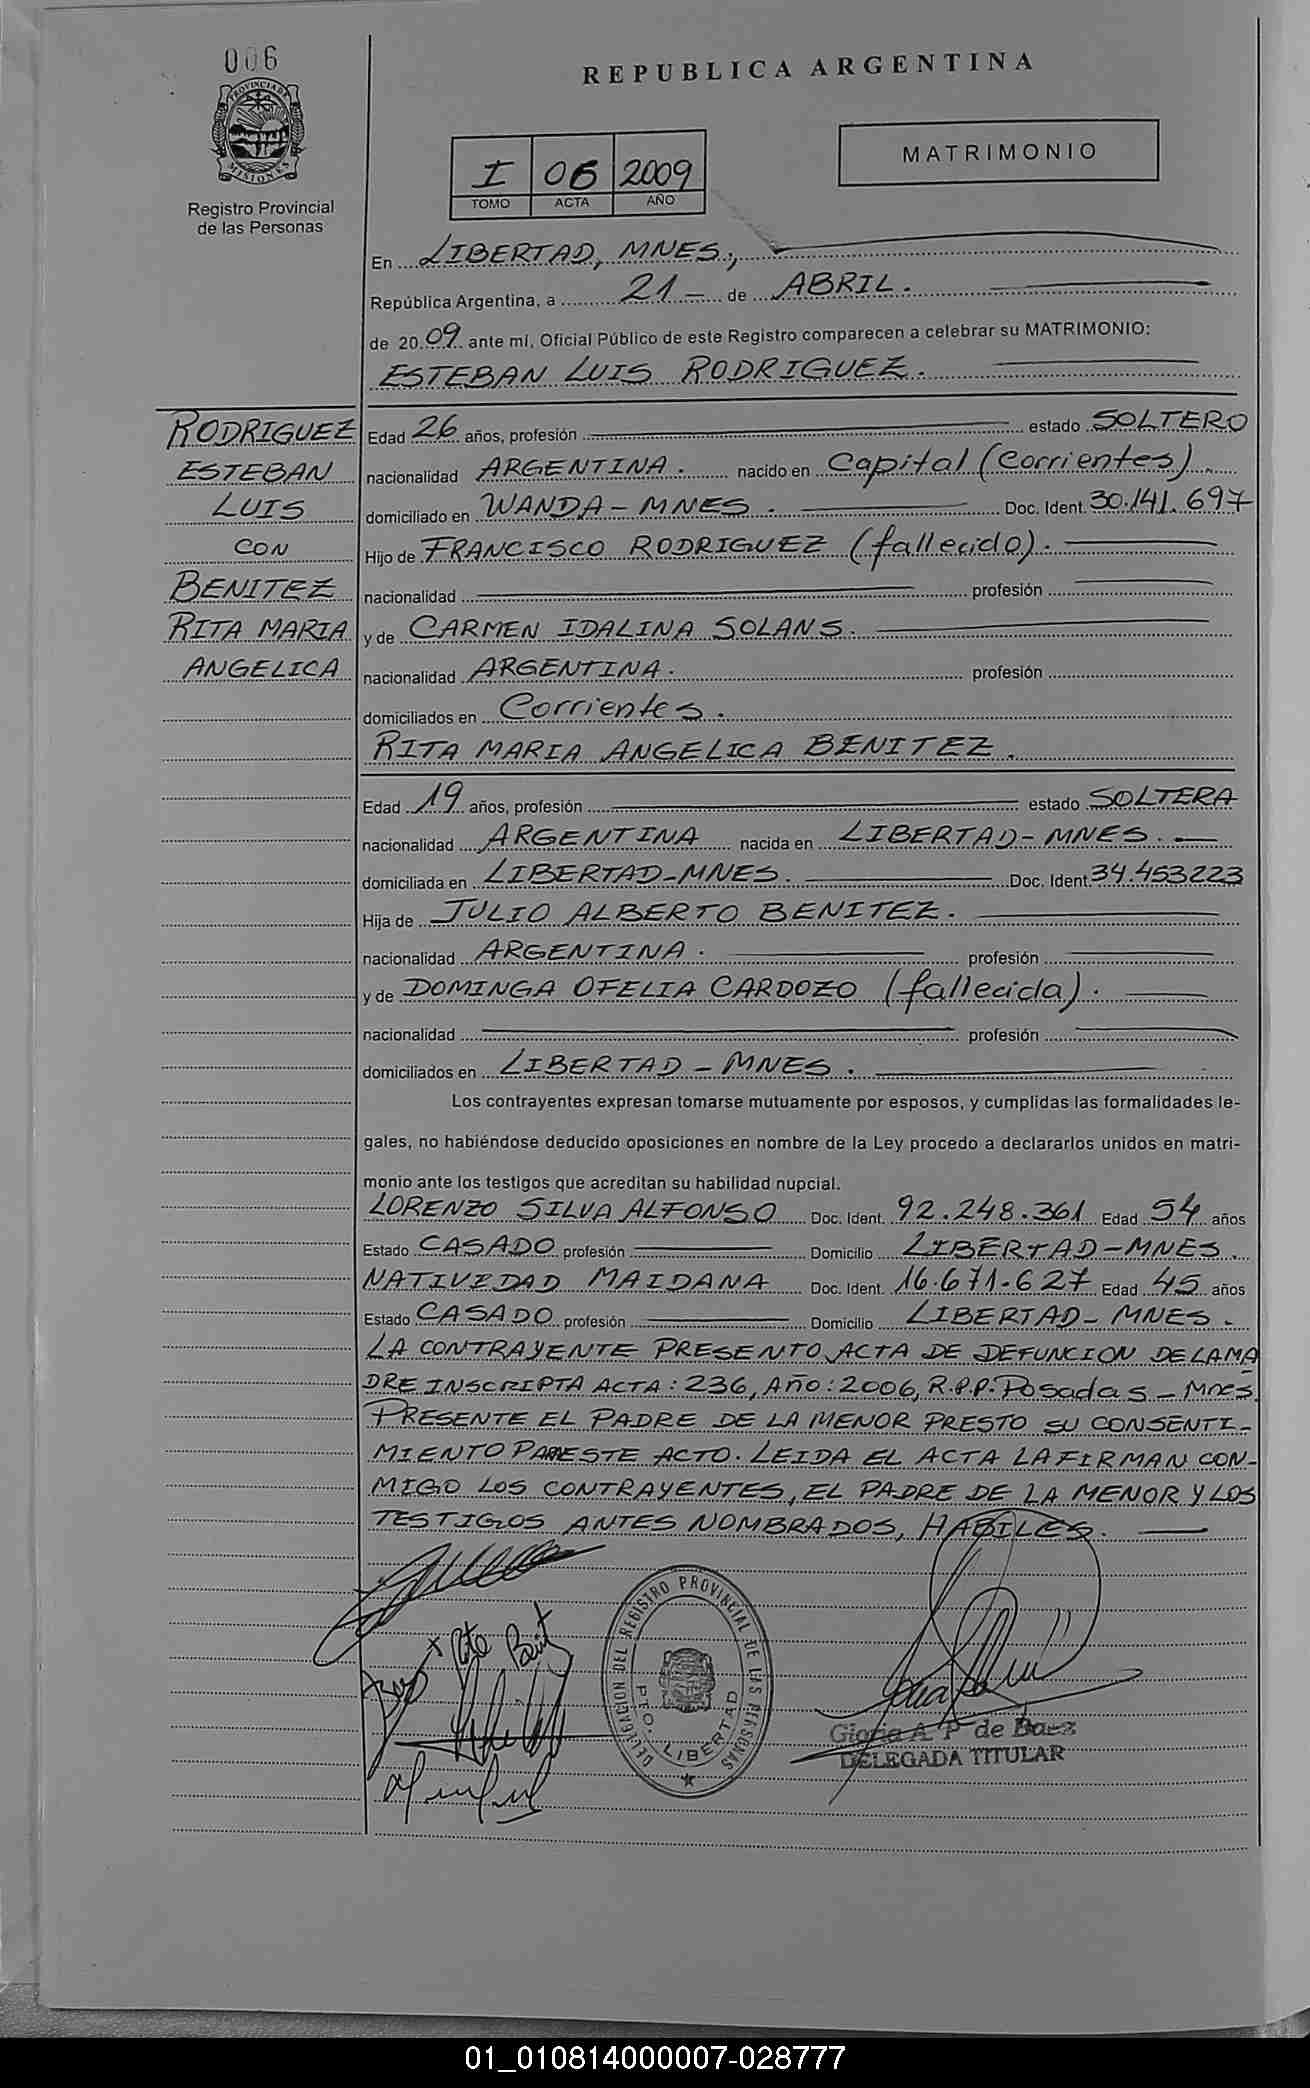 006
PROVINCIA DE
MISIONES
Registro Provincial
de las Personas
REPUBLICA ARGENTINA
I 06 2009
TOMO ACTA AÑO
MATRIMONIO
En LIBERTAD, MNES.,
República Argentina, a 21 - de ABRIL.
de 2009 ante mí, Oficial Público de este Registro comparecen a celebrar su MATRIMONIO:
ESTEBAN LUIS RODRIGUEZ.
RODRIGUEZ
ESTEBAN
LUIS
CON
BENITEZ
RITA MARIA
ANGELICA
Edad 26 años, profesión estado SOLTERO
nacionalidad ARGENTINA. nacido en Capital (Corrientes).
domiciliado en WANDA - MNES. Doc. Ident. 30.141.697
Hijo de FRANCISCO RODRIGUEZ (fallecido).
nacionalidad profesión
y de CARMEN IDALINA SOLANS.
nacionalidad ARGENTINA. profesión
domiciliados en Corrientes.
RITA MARIA ANGELICA BENITEZ.
Edad 19 años, profesión estado SOLTERA
nacionalidad ARGENTINA nacida en LIBERTAD - MNES.
domiciliada en LIBERTAD - MNES. Doc. Ident. 34.453223
Hija de JULIO ALBERTO BENITEZ.
nacionalidad ARGENTINA. profesión
y de DOMINGA OFELIA CARDOZO (fallecida).
nacionalidad profesión
domiciliados en LIBERTAD - MNES.
Los contrayentes expresan tomarse mutuamente por esposos, y cumplidas las formalidades le-
gales, no habiéndose deducido oposiciones en nombre de la Ley procedo a declararlos unidos en matri-
monio ante los testigos que acreditan su habilidad nupcial.
LORENZO SILVA ALFONSO Doc. Ident. 92.248.361 Edad 54 años
Estado CASADO profesión Domicilio LIBERTAD - MNES.
NATIVIDAD MAIDANA Doc. Ident. 16.671.627 Edad 45 años
Estado CASADO profesión Domicilio LIBERTAD - MNES.
LA CONTRAYENTE PRESENTO ACTA DE DEFUNCION DE LA MA
DRE INSCRIPTA ACTA: 236, Año: 2006, R.P.P. Posadas - Mnes.
PRESENTE EL PADRE DE LA MENOR PRESTO SU CONSENTI-
MIENTO PARA ESTE ACTO. LEIDA EL ACTA LA FIRMAN CON-
MIGO LOS CONTRAYENTES, EL PADRE DE LA MENOR Y LOS
TESTIGOS ANTES NOMBRADOS, HABILES.
DELEGACION DEL REGISTRO PROVINCIAL DE LAS PERSONAS
PTO. LIBERTAD
Gloria A. P. de Baez
DELEGADA TITULAR
01_010814000007-028777